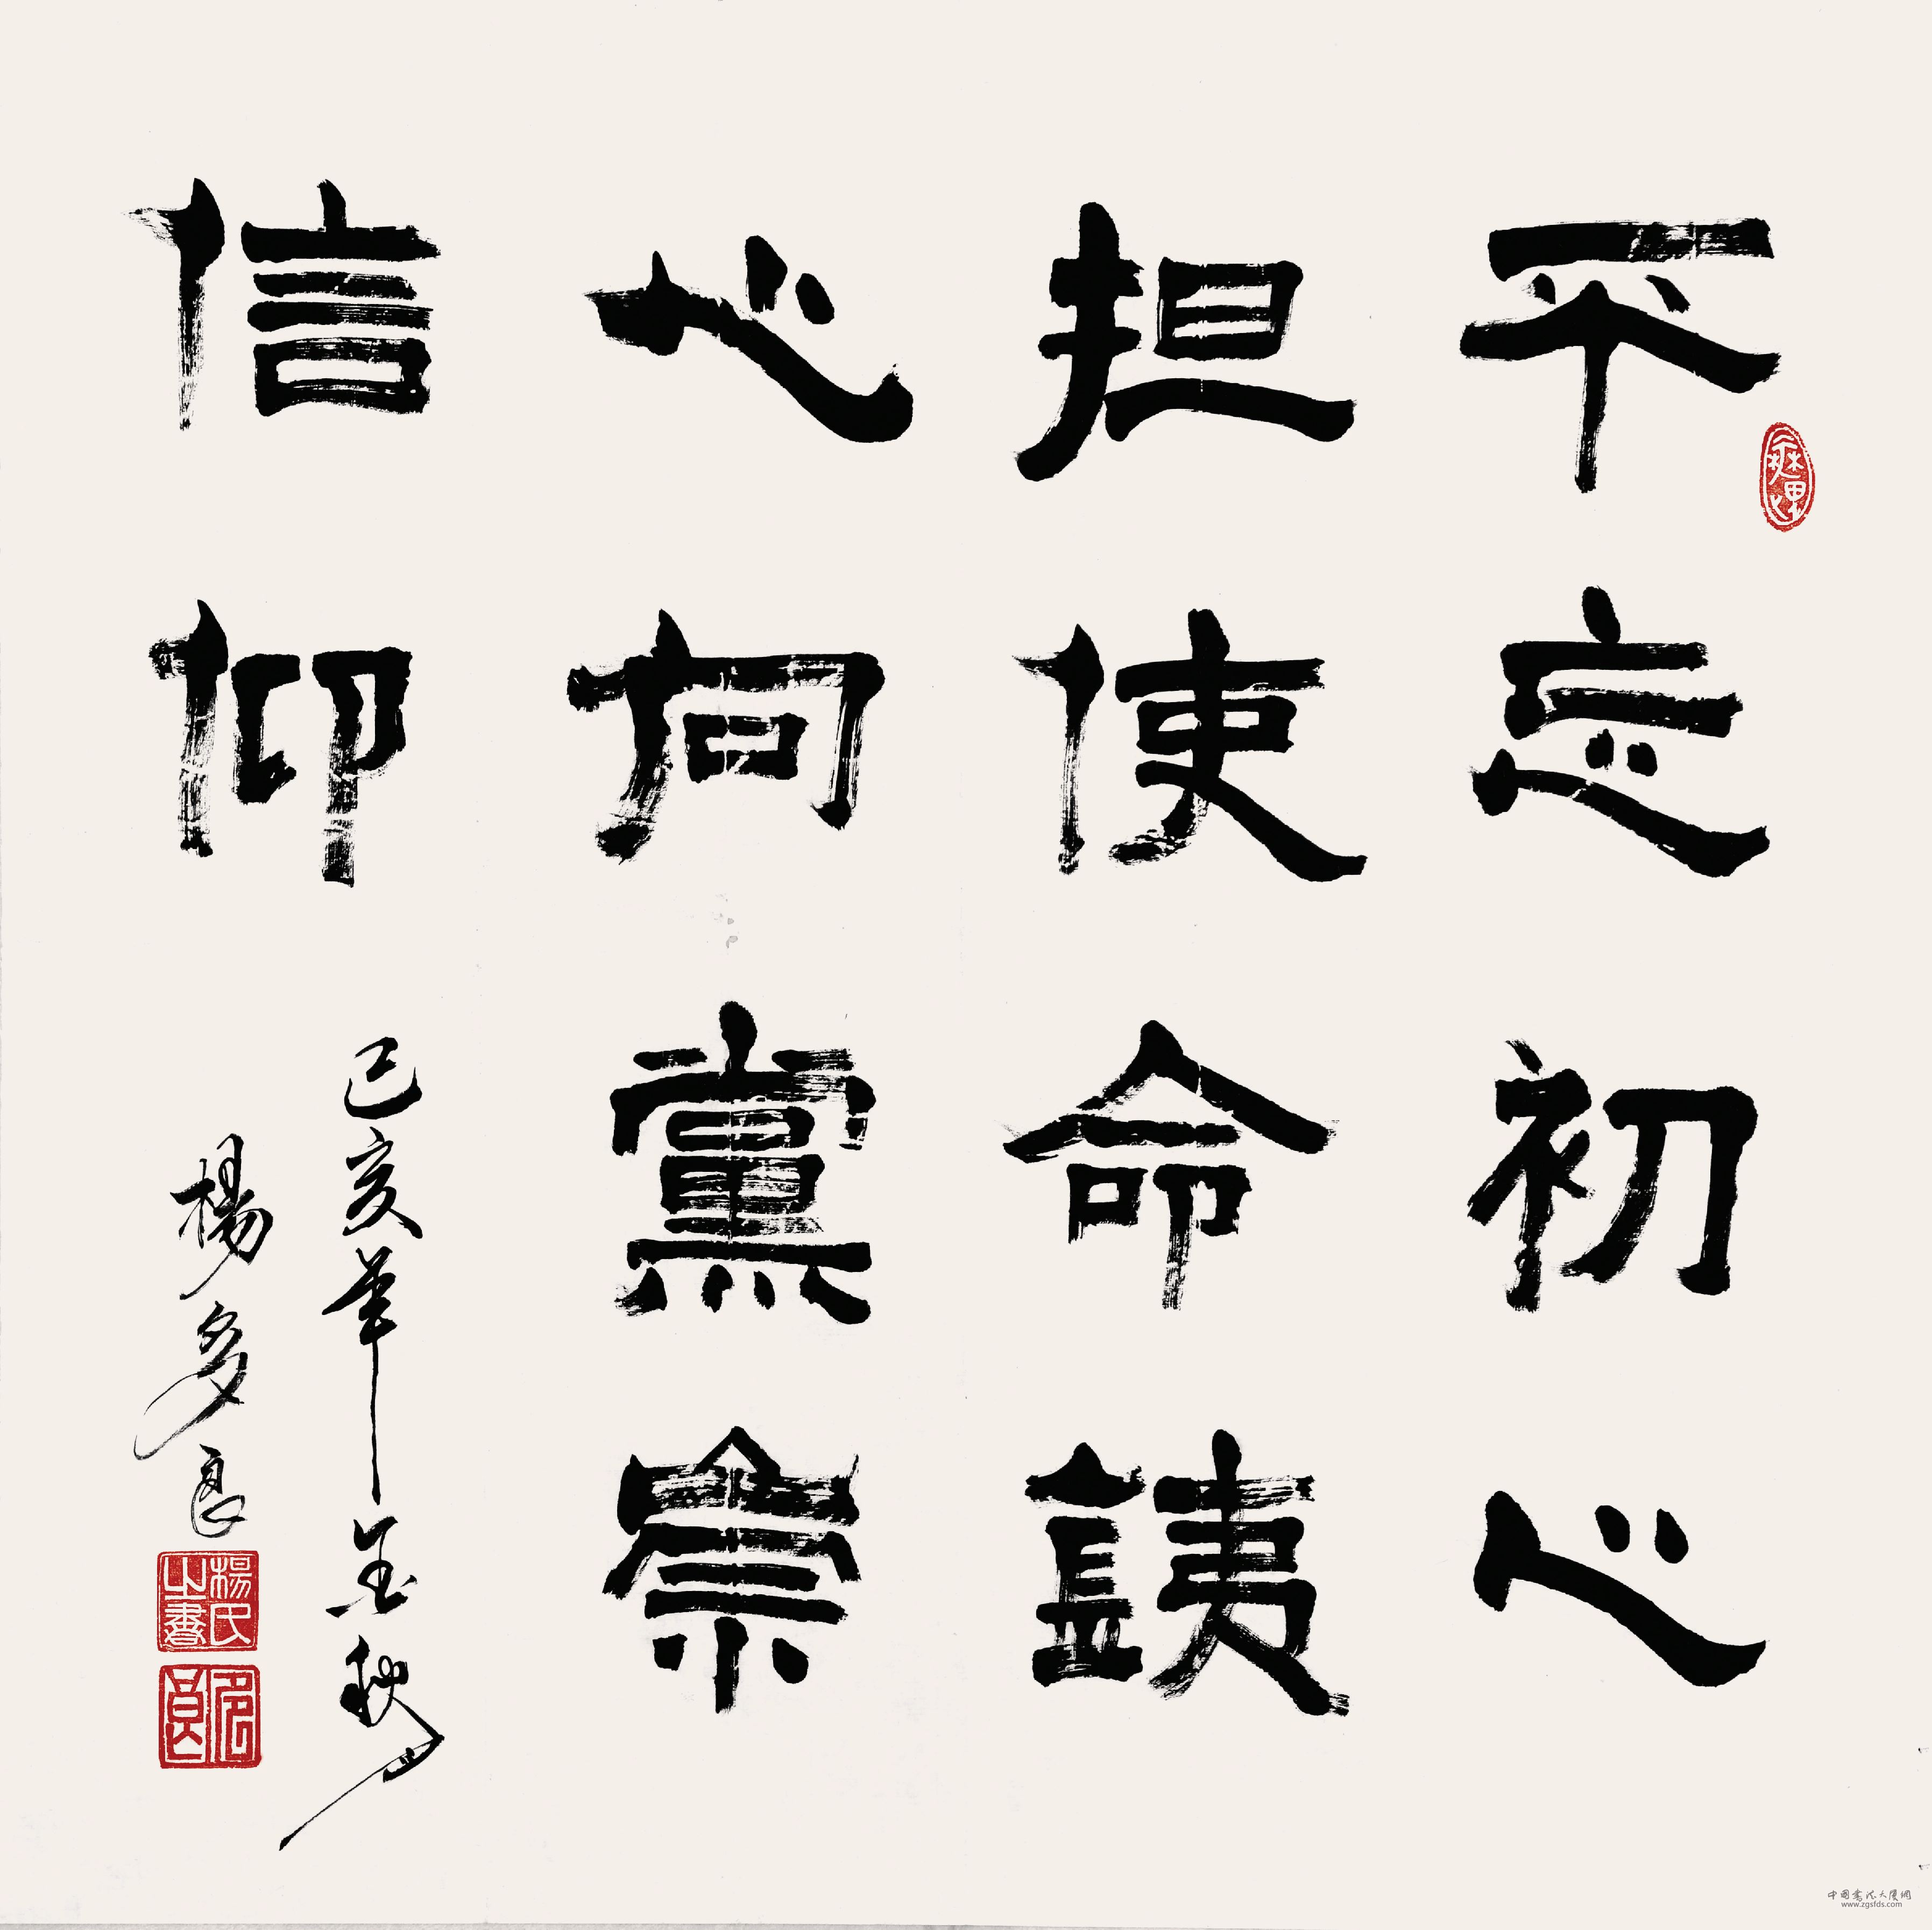 不忘初心
担使命銕
心向黨崇
信仰
己亥年金秋月
楊多良
楊氏之書
多良
中国書法大廈網
www.zgsfds.com